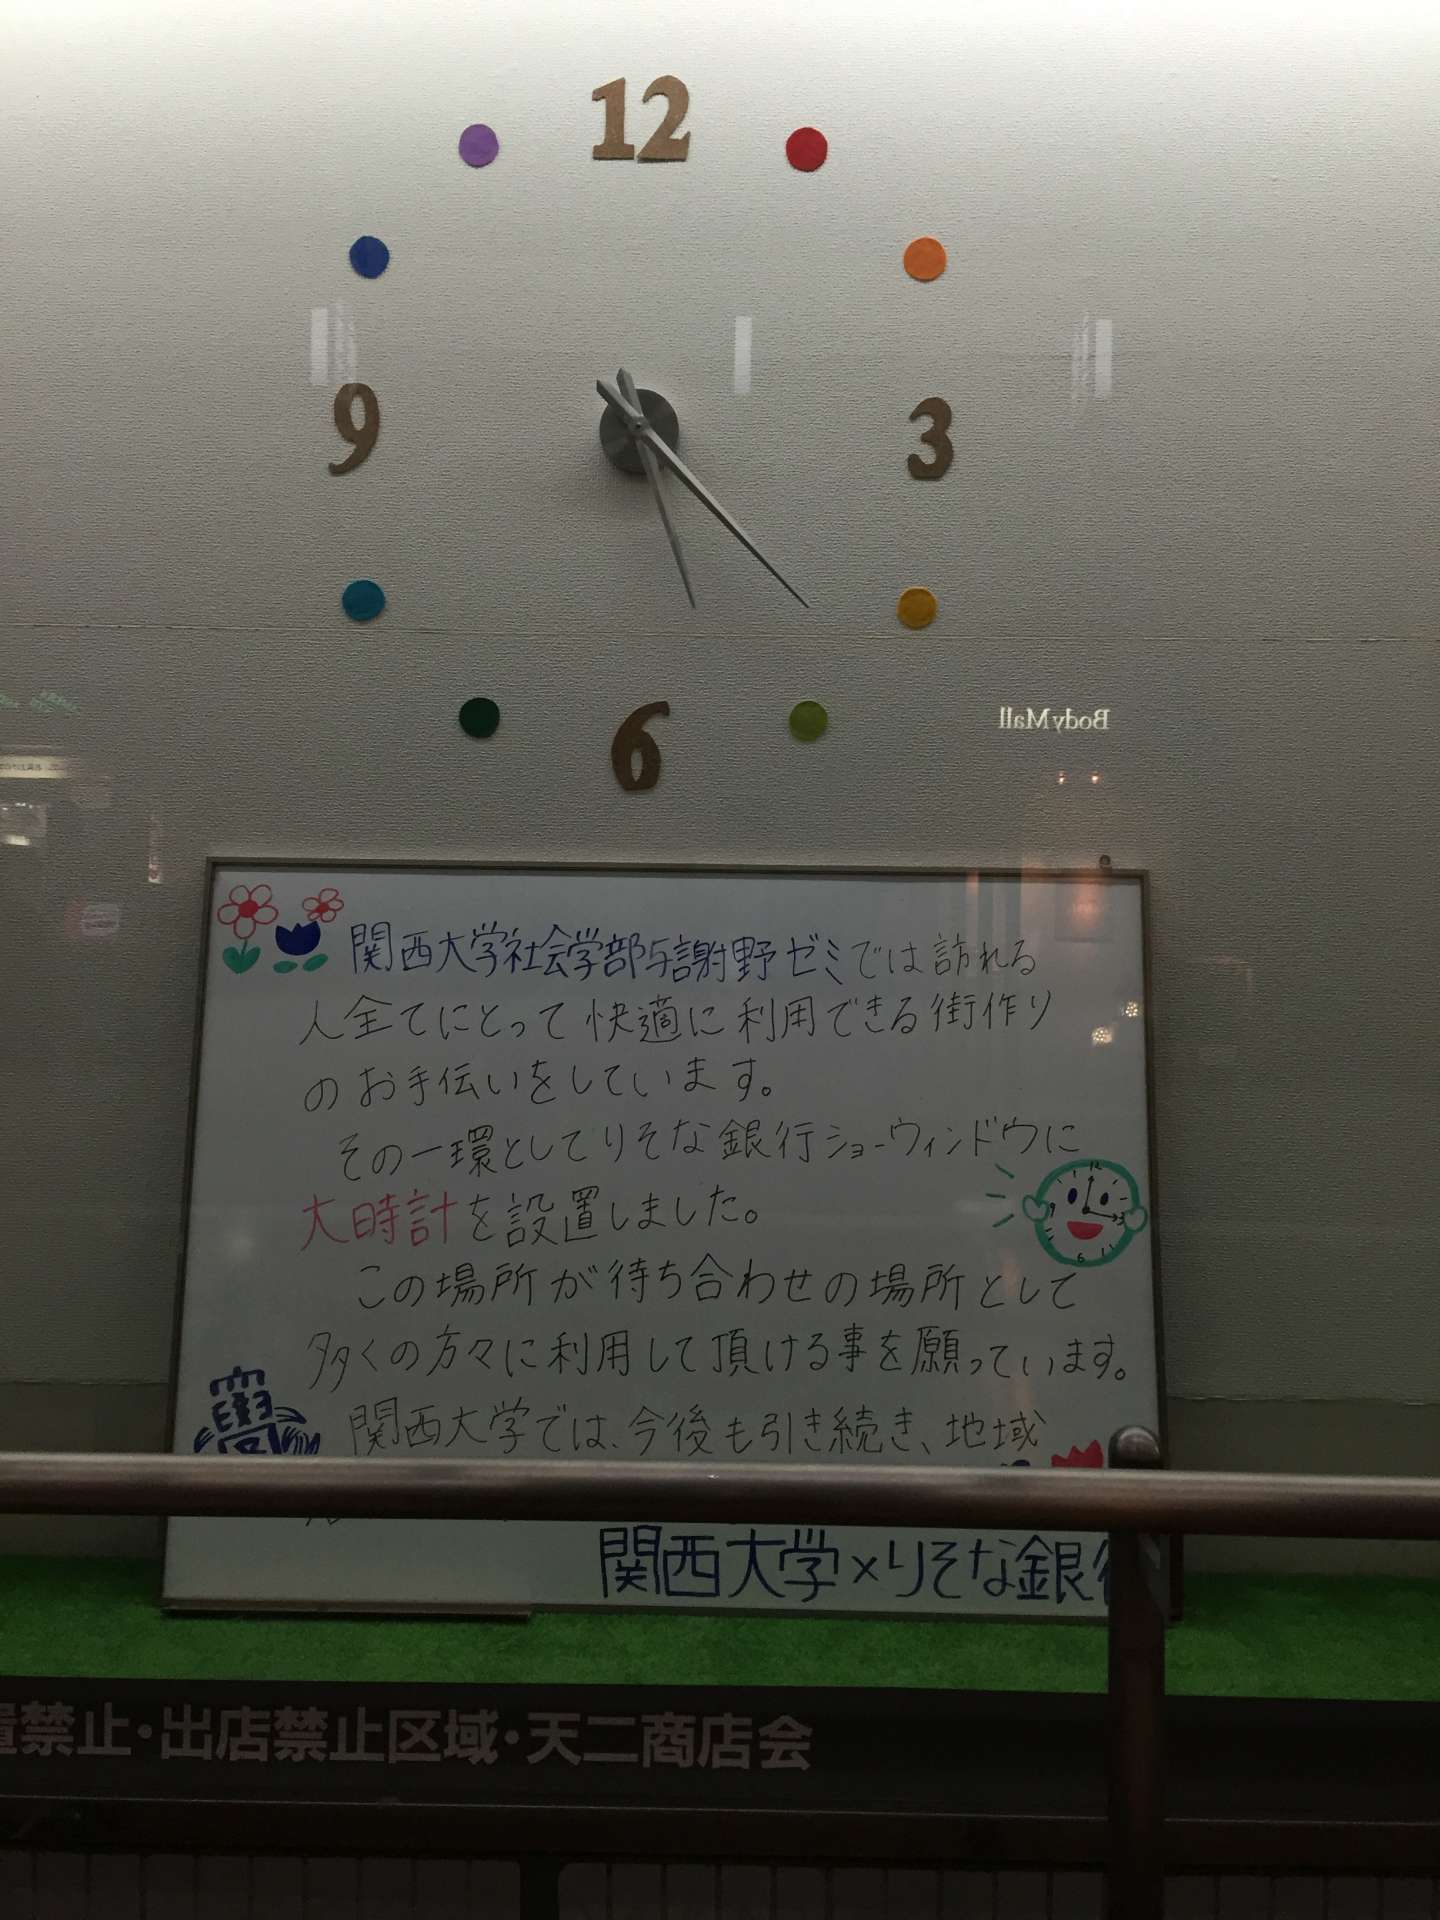 12
9
3
6
BodyMall
関西大学社会学部与謝野ゼミでは訪れる
人全てにとって快適に利用できる街作り
のお手伝いをしています。
その一環としてりそな銀行ショーウィンドウに
大時計を設置しました。
この場所が待ち合わせの場所として
多くの方々に利用して頂ける事を願っています。
関西大学では、今後も引き続き、地域
関西大学×りそな銀行
置禁止・出店禁止区域・天二商店会